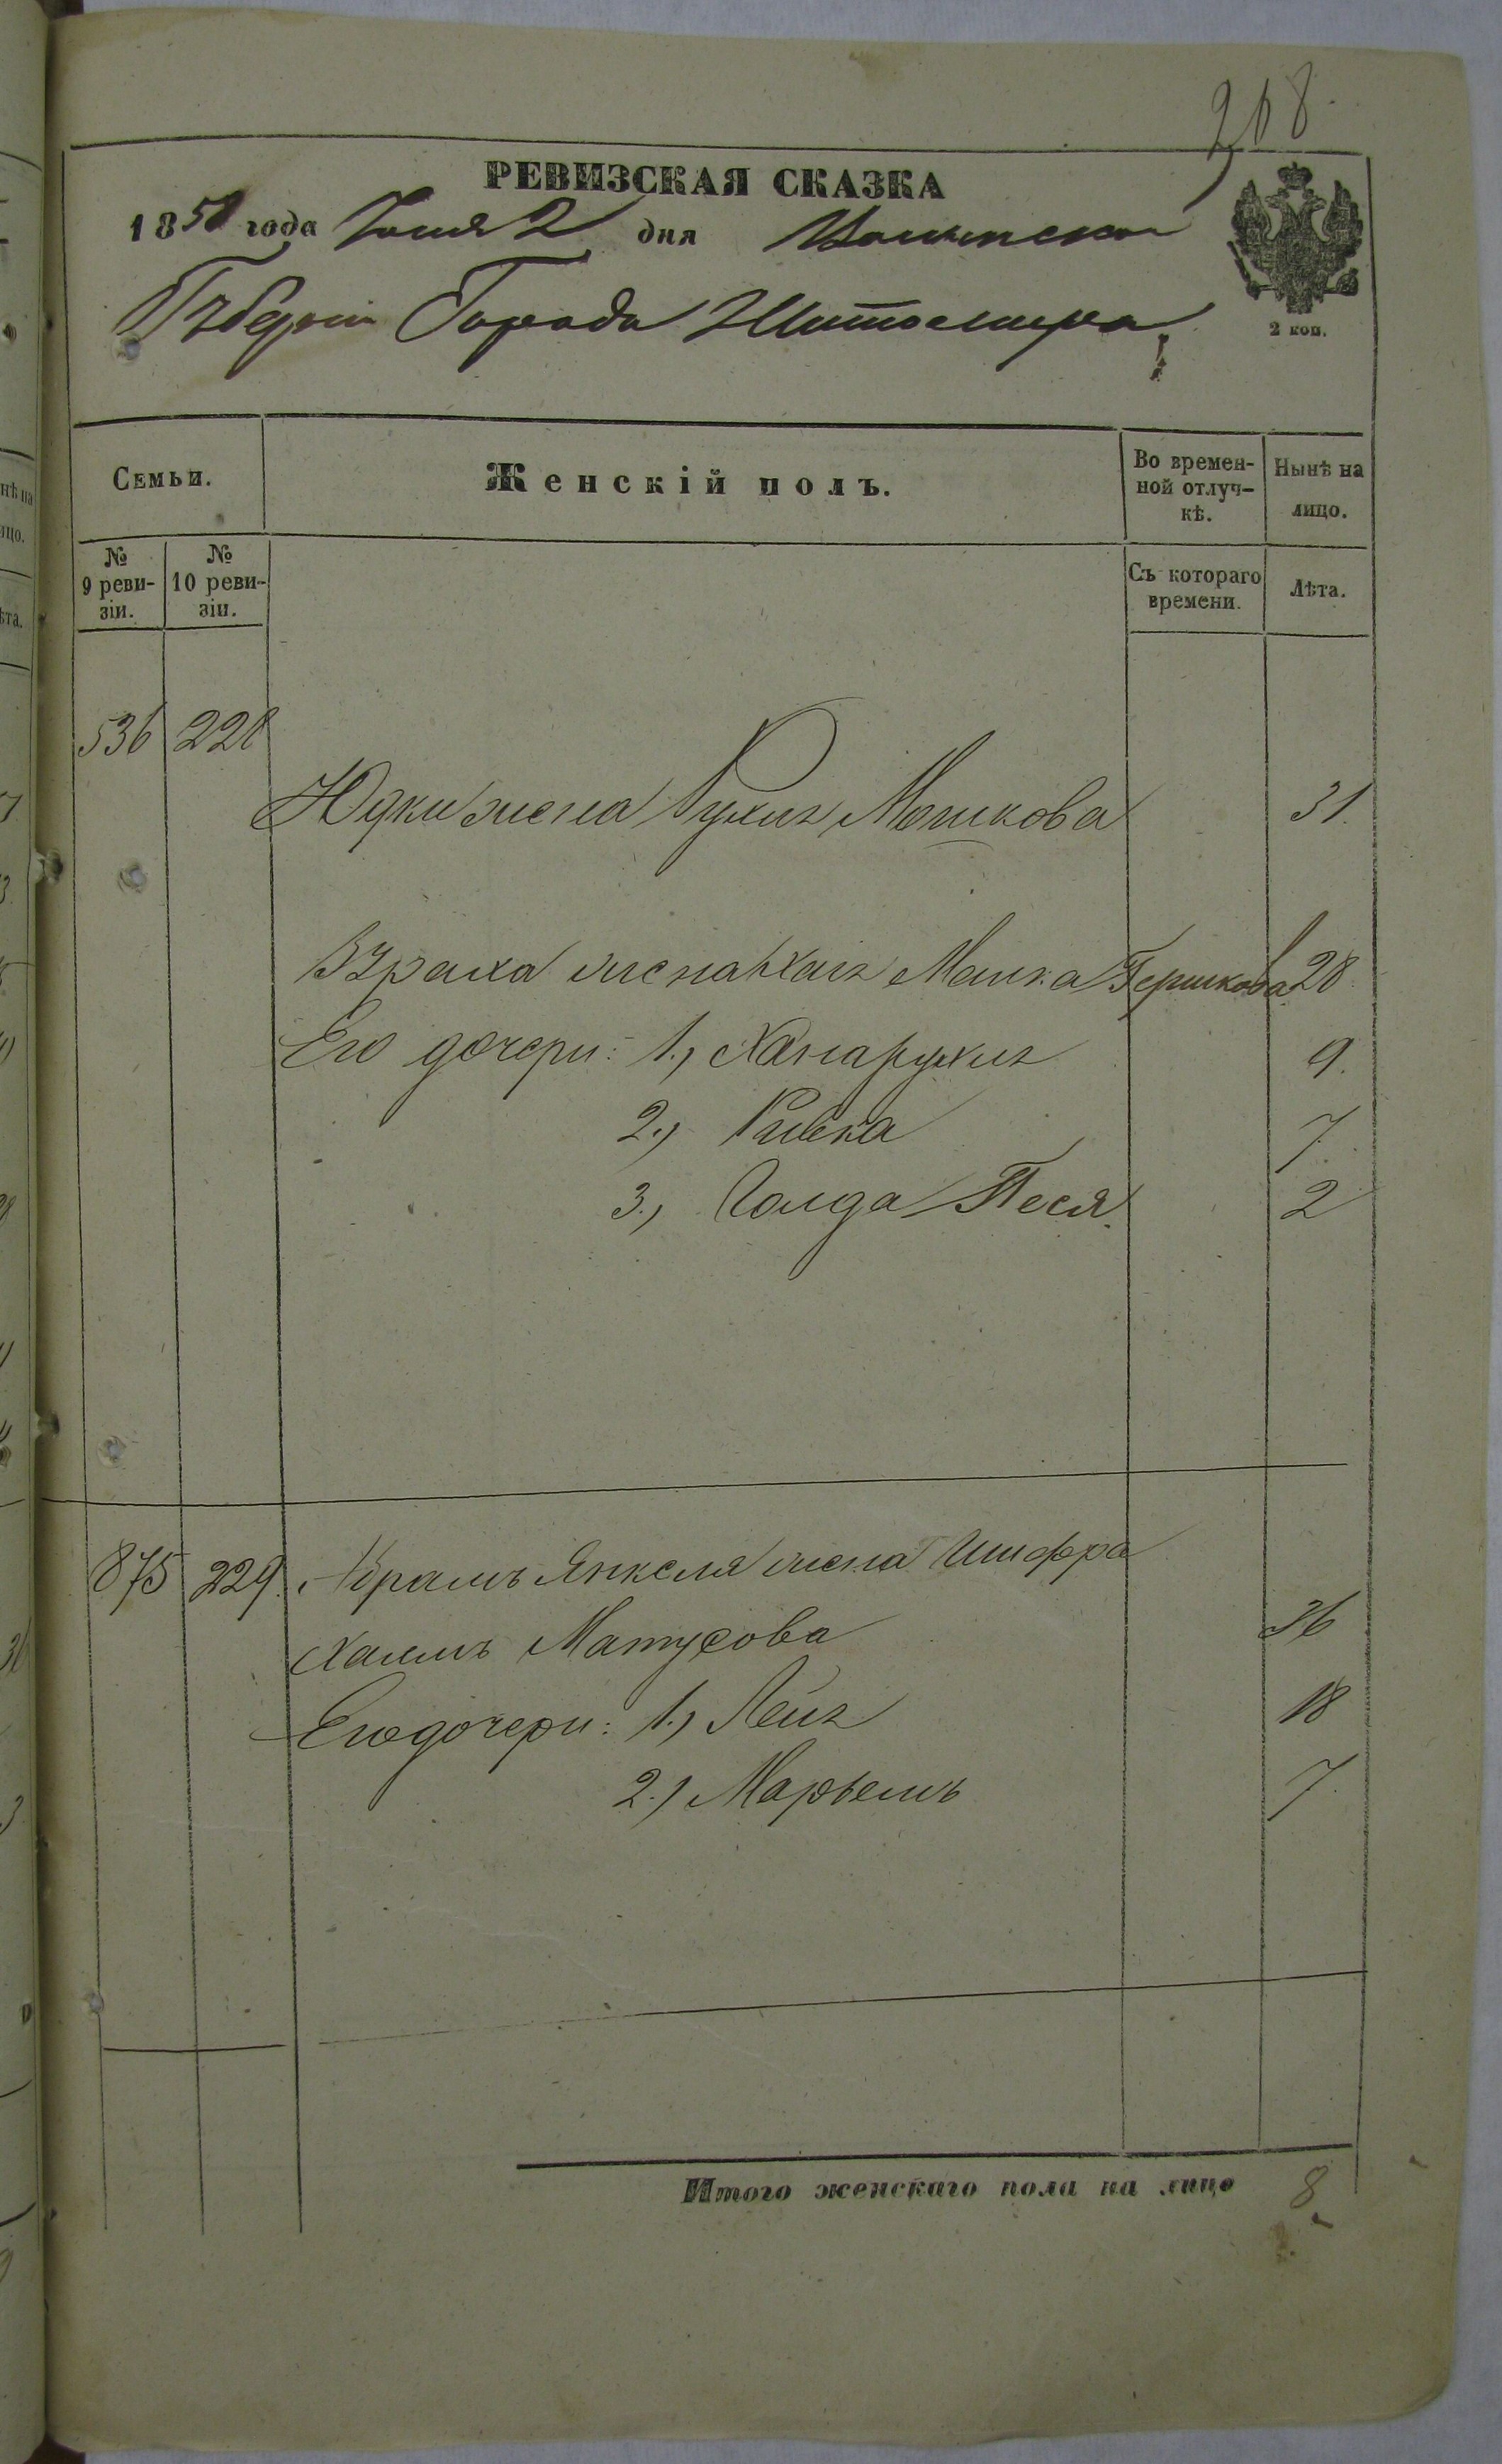 268.
РЕВИЗСКАЯ СКАЗКА
1858 года Іюня 2 дня Волынской
Губерніи Города Житомира
2 коп.
Семьи.
Женскій полъ.
Во времен-
ной отлуч-
кѣ.
Нынѣ на
лицо.
№
9 реви-
зіи.
№
10 реви-
зіи.
Съ котораго
времени.
Лѣта.
536 228
Юдки жена Рухля Мошкова 31.
Жена Хая Малка Гершкова 28
Его дочери: 1.) Ханарухля 9.
2.) Ривка 7.
3.) Голда Песя. 2
875 229. Абрамъ Янкеля жена Шифра
Хаимъ Матусова 36
Его дочери: 1.) Лея 18
2.) Марьемъ 7.
Итого женскаго пола на лицо 8